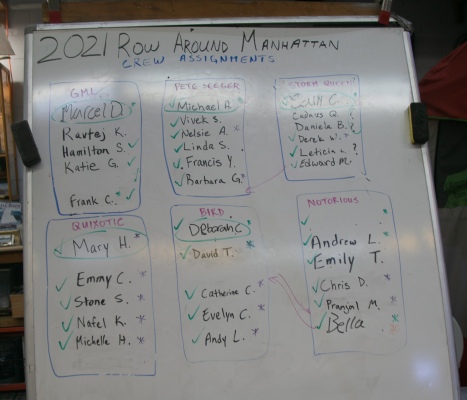 2021 ROW AROUND MANHATTAN
CREW ASSIGNMENTS
GML
Marcel D.
Kavtej K.
Hamilton S.
Katie G.
Frank C.
PETE SEEGER
Michael R.
Vivek S.
Nelsie A.
Linda S.
Francis Y.
Barbara G.
STORM QUEEN
Colin C.
Daniela B. ?
Derek W.
Leticia L. ?
Edward M.
QUIXOTIC
Mary H.
Emmy C.
Stone S.
Nafel K.
Michelle H.
BIRD
Deborah C
David T.
Catherine C.
Evelyn C.
Andy L.
NOTORIOUS
Andrew L.
Emily T.
Chris D.
Pranjal M.
Bella